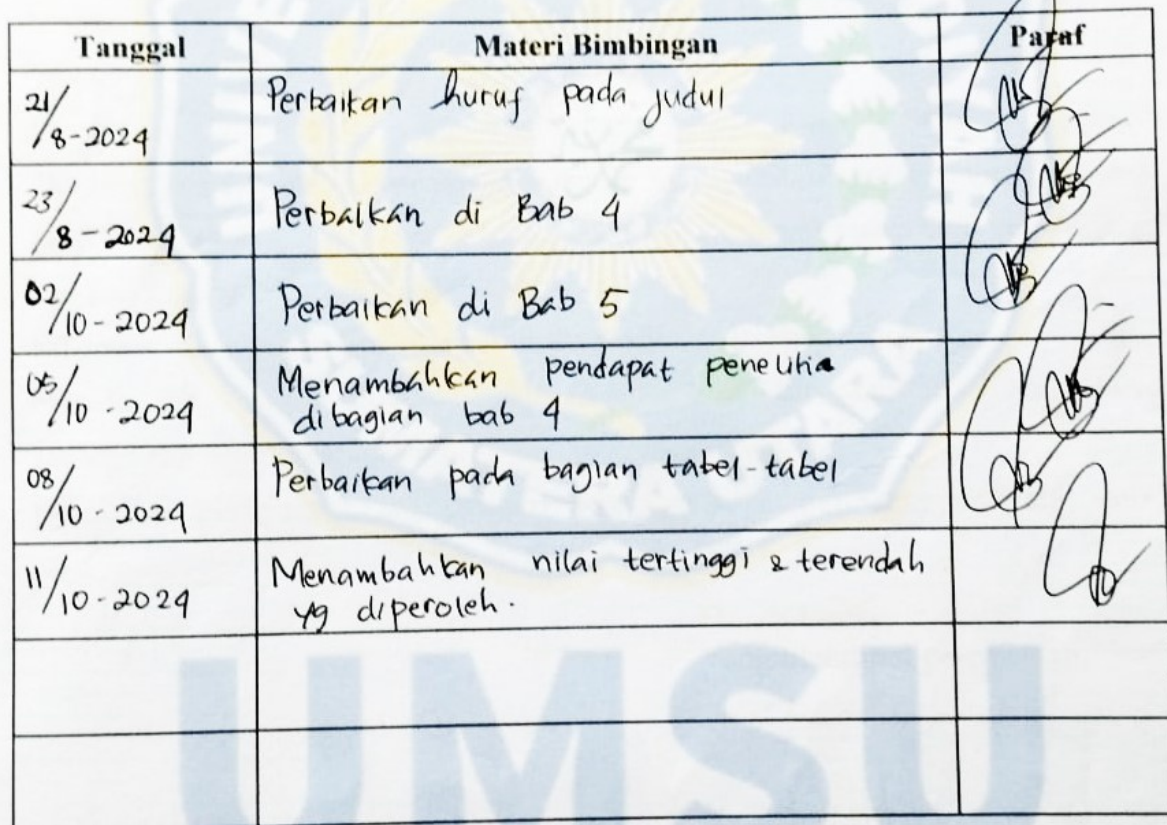 Tanggal Materi Bimbingan Paraf
21/8-2024 Perbaikan huruf pada judul
23/8-2024 Perbaikan di Bab 4
02/10-2024 Perbaikan di Bab 5
05/10-2024 Menambahkan pendapat penelitia
dibagian bab 4
08/10-2024 Perbaikan pada bagian tabel-tabel
11/10-2024 Menambahkan nilai tertinggi & terendah
yg diperoleh.
UMSU